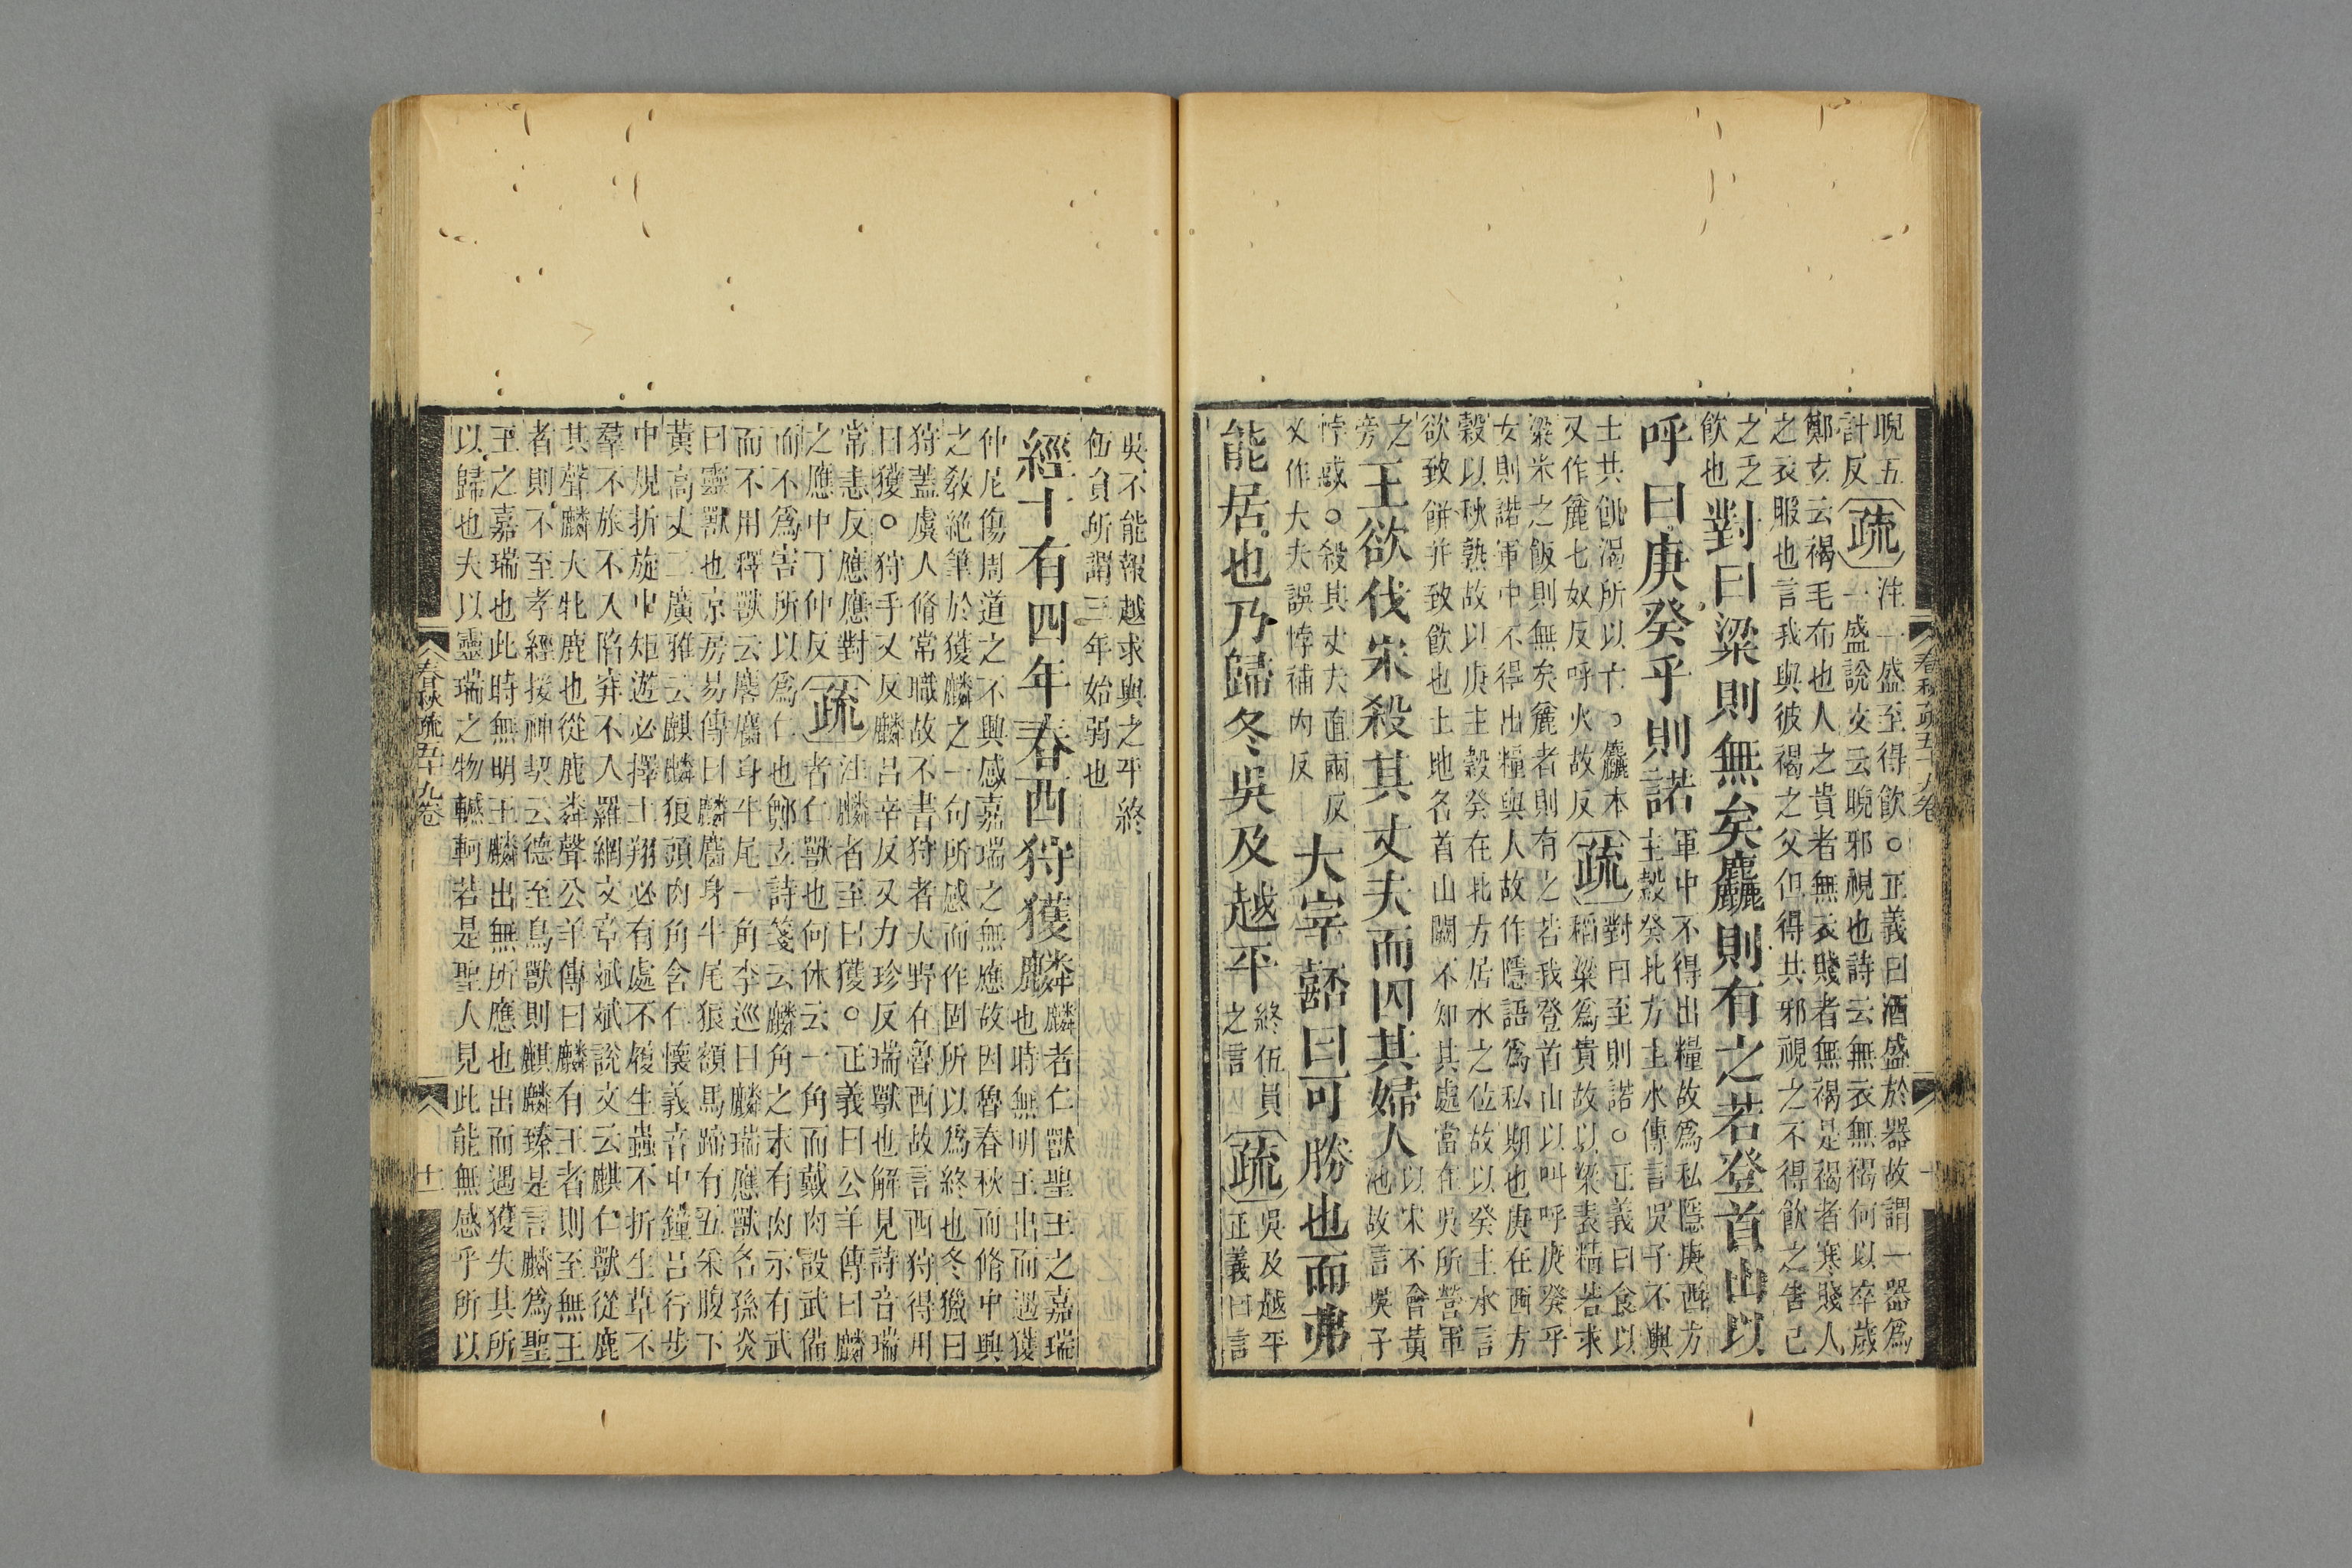 睨五
計反
疏
注一盛至得飮○正義曰酒盛於器故謂一器爲
一盛說文云睨邪視也詩云無衣無褐何以卒歲
鄭玄云褐毛布也人之貴者無衣賤者無褐是褐者寒賤人
之衣服也言我與彼褐之父但得共邪視之不得飮之害己
之乏
飮也
對曰粱則無矣麤則有之若登首山以
呼曰庚癸乎則諾
軍中不得出糧故爲私隱庚西方
主穀癸北方主水傳言吳子不與
士共飢渴所以亡○麤本
又作麄七奴反呼火故反
疏
對曰至則諾○正義曰食以
稻粱爲貴故以粱表精若求
粱米之飯則無矣麄者則有之若我登首山以叫呼庚癸乎
女則諾軍中不得出糧與人故作隱語爲私期也庚在西方
穀以秋熟故以庚主穀癸在北方居水之位故以癸主水言
欲致餅并致飮也土地名首山闕不知其處當在吳所營軍
之
旁
王欲伐宋殺其丈夫而囚其婦人
以宋不會黃
池故言吳子
悖惑○殺其丈夫直兩反
又作大夫誤悖補內反
大宰嚭曰可勝也而弗
能居也乃歸冬吳及越平
終伍員
之言
疏
吳及越平
正義曰言
春秋疏五十九卷
吳不能報越求與之平終
伍員所謂三年始弱也
經十有四年春西狩獲麟
麟者仁獸聖王之嘉瑞
也時無明王出而遇獲
仲尼傷周道之不興感嘉瑞之無應故因魯春秋而脩中興
之敎絕筆於獲麟之一句所感而作固所以爲終也冬獵曰
狩蓋虞人脩常職故不書狩者大野在魯西故言西狩得用
曰獲○狩手又反麟呂辛反又力珍反瑞獸也解見詩音瑞
常恚反應應對
之應中丁仲反
疏
注麟者至曰獲○正義曰公羊傳曰麟
者仁獸也何休云一角而戴肉設武備
而不爲害所以爲仁也鄭玄詩箋云麟角之末有肉示有武
而不用釋獸云麐麕身牛尾一角李巡曰麟瑞應獸名孫炎
曰靈獸也京房易傳曰麟麕身牛尾狼額馬蹄有五采腹下
黃高丈二廣雅云麒麟狼頭肉角含仁懷義音中鐘呂行步
中規折旋中矩遊必擇土翔必有處不履生蟲不折生草不
羣不旅不入陷穽不入羅網文章斌斌說文云麒仁獸從鹿
其聲麟大牝鹿也從鹿粦聲公羊傳曰麟有王者則至無王
者則不至孝經援神契云德至鳥獸則麒麟臻是言麟爲聖
王之嘉瑞也此時無明王麟出無所應也出而遇獲失其所
以歸也夫以靈瑞之物轗軻若是聖人見此能無感乎所以
春秋疏五十九卷
十一